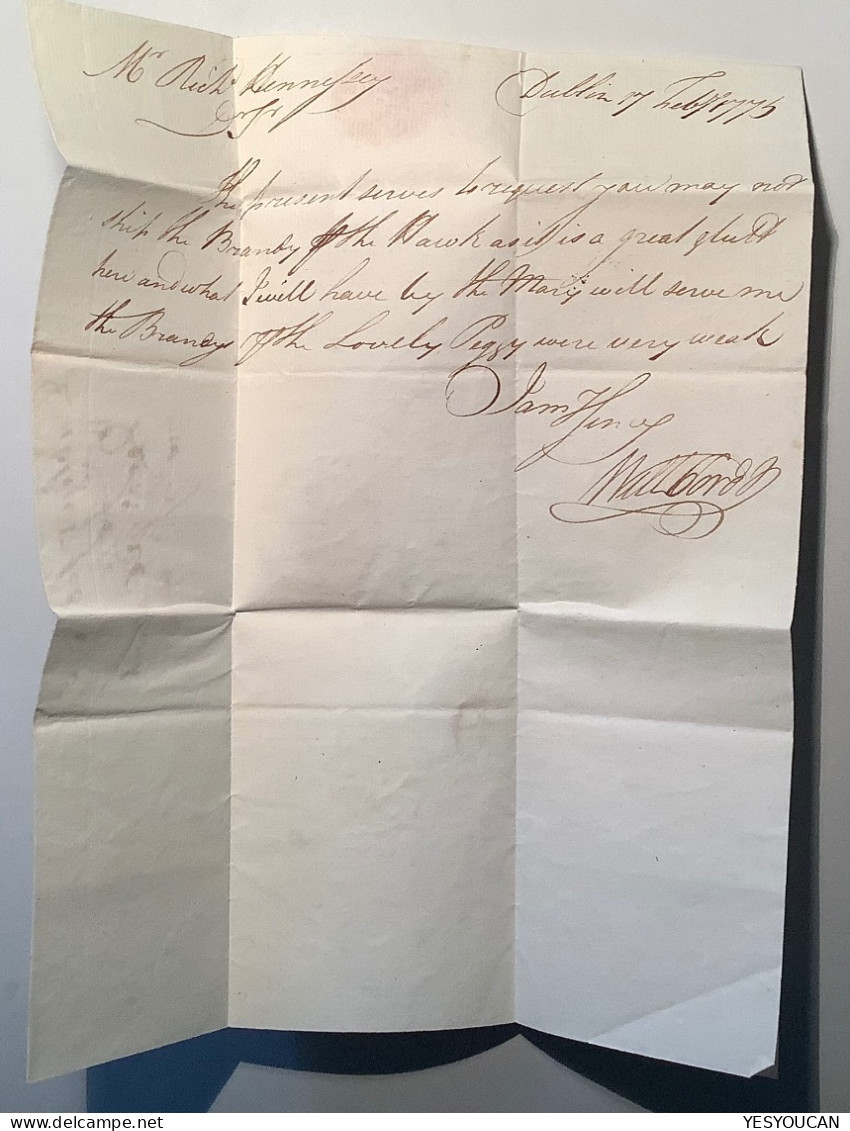 Mr Richd Hennessey Dublin 17 Feby 1776
Dr Sr
The present serves to request you may not
ship the Brandy ⅌ the Hawk as it is a great glutt
here and what I will have by the Mary will serve me
the Brandys ⅌ the Lovely Peggy were very weak
I am
YESYOUCAN